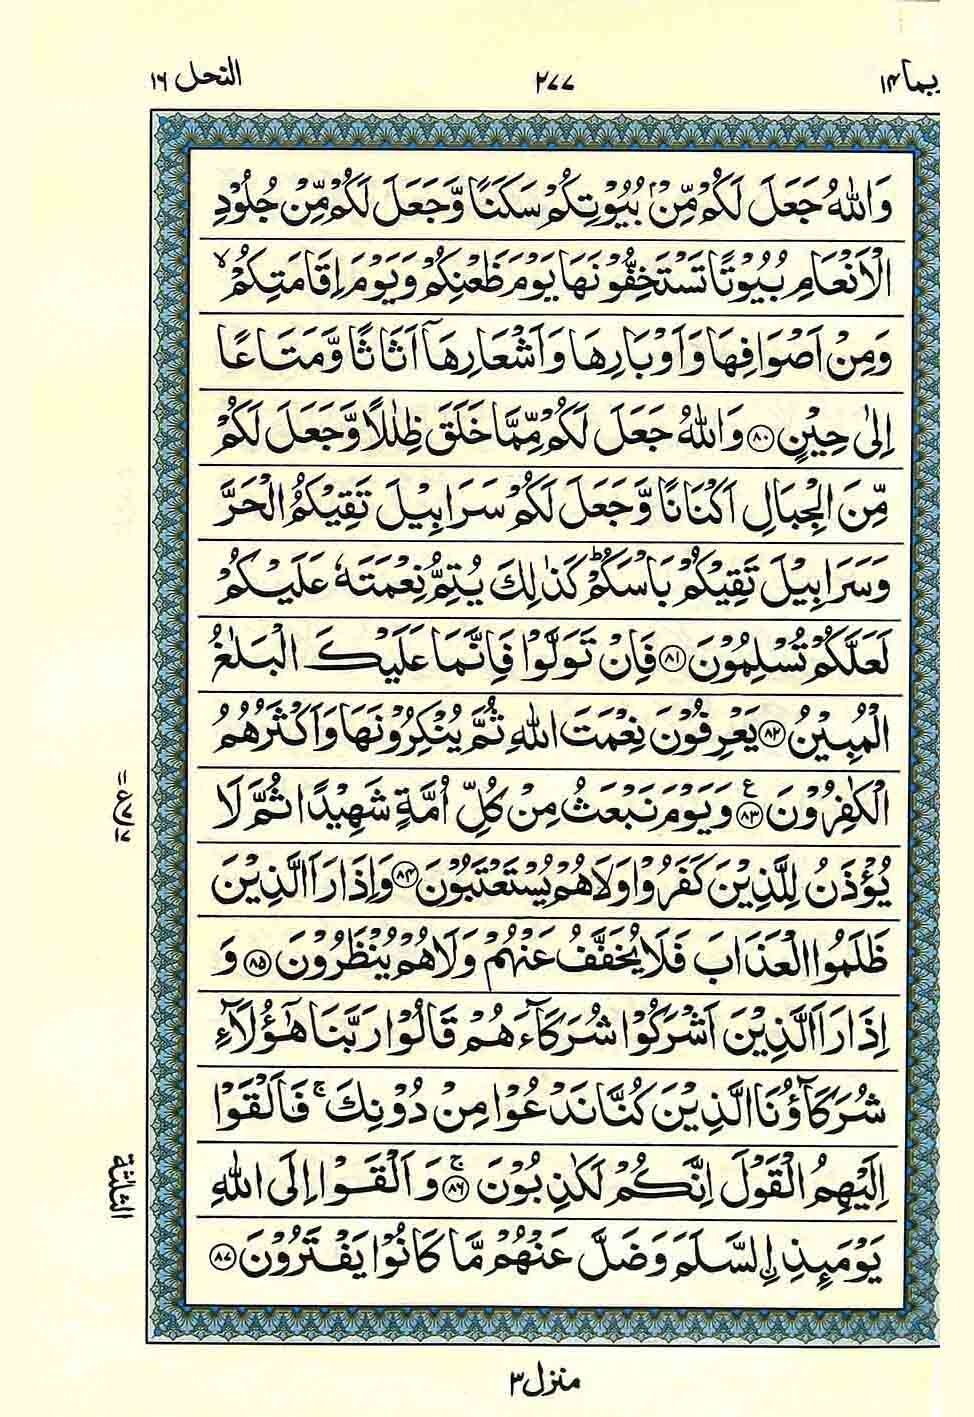 ربما ١٤
٢٧٧
النحل ١٦
وَاللّٰهُ جَعَلَ لَكُمْ مِّنْۢ بُيُوْتِكُمْ سَكَنًا وَّجَعَلَ لَكُمْ مِّنْ جُلُوْدِ
الْاَنْعَامِ بُيُوْتًا تَسْتَخِفُّوْنَهَا يَوْمَ ظَعْنِكُمْ وَيَوْمَ اِقَامَتِكُمْ ۙ
وَمِنْ اَصْوَافِهَا وَاَوْبَارِهَا وَاَشْعَارِهَاۤ اَثَاثًا وَّمَتَاعًا
اِلٰى حِيْنٍ ﴿٨٠﴾ وَاللّٰهُ جَعَلَ لَكُمْ مِّمَّا خَلَقَ ظِلٰلًا وَّجَعَلَ لَكُمْ
مِّنَ الْجِبَالِ اَكْنَانًا وَّجَعَلَ لَكُمْ سَرَابِيْلَ تَقِيْكُمُ الْحَرَّ
وَسَرَابِيْلَ تَقِيْكُمْ بَاْسَكُمْ ؕ كَذٰلِكَ يُتِمُّ نِعْمَتَهٗ عَلَيْكُمْ
لَعَلَّكُمْ تُسْلِمُوْنَ ﴿٨١﴾ فَاِنْ تَوَلَّوْا فَاِنَّمَا عَلَيْكَ الْبَلٰغُ
الْمُبِيْنُ ﴿٨٢﴾ يَعْرِفُوْنَ نِعْمَتَ اللّٰهِ ثُمَّ يُنْكِرُوْنَهَا وَاَكْثَرُهُمُ
الْكٰفِرُوْنَ ﴿٨٣﴾ ع وَيَوْمَ نَبْعَثُ مِنْ كُلِّ اُمَّةٍ شَهِيْدًا ثُمَّ لَا
يُؤْذَنُ لِلَّذِيْنَ كَفَرُوْا وَلَا هُمْ يُسْتَعْتَبُوْنَ ﴿٨٤﴾ وَاِذَا رَاَ الَّذِيْنَ
ظَلَمُوا الْعَذَابَ فَلَا يُخَفَّفُ عَنْهُمْ وَلَا هُمْ يُنْظَرُوْنَ ﴿٨٥﴾ وَ
اِذَا رَاَ الَّذِيْنَ اَشْرَكُوْا شُرَكَآءَهُمْ قَالُوْا رَبَّنَا هٰۤؤُلَآءِ
شُرَكَآؤُنَا الَّذِيْنَ كُنَّا نَدْعُوْا مِنْ دُوْنِكَ ۚ فَاَلْقَوْا
اِلَيْهِمُ الْقَوْلَ اِنَّكُمْ لَكٰذِبُوْنَ ﴿٨٦﴾ۚ وَاَلْقَوْا اِلَى اللّٰهِ
يَوْمَئِذِ ِۨالسَّلَمَ وَضَلَّ عَنْهُمْ مَّا كَانُوْا يَفْتَرُوْنَ ﴿٨٧﴾
الثلثة
منزل ٣